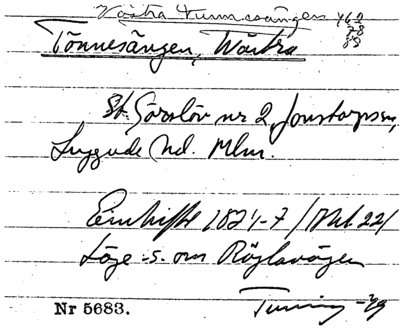 Västra Tunnesången 462
78
89
Tönnesången, Wästra
St. Görslöv nr 2, Jonstorps sn,
Luggude hd. Mlm.
Enskifte 1824-7 /Akt. 22/
Läge: s. om Röglavägen
Nr 5683.